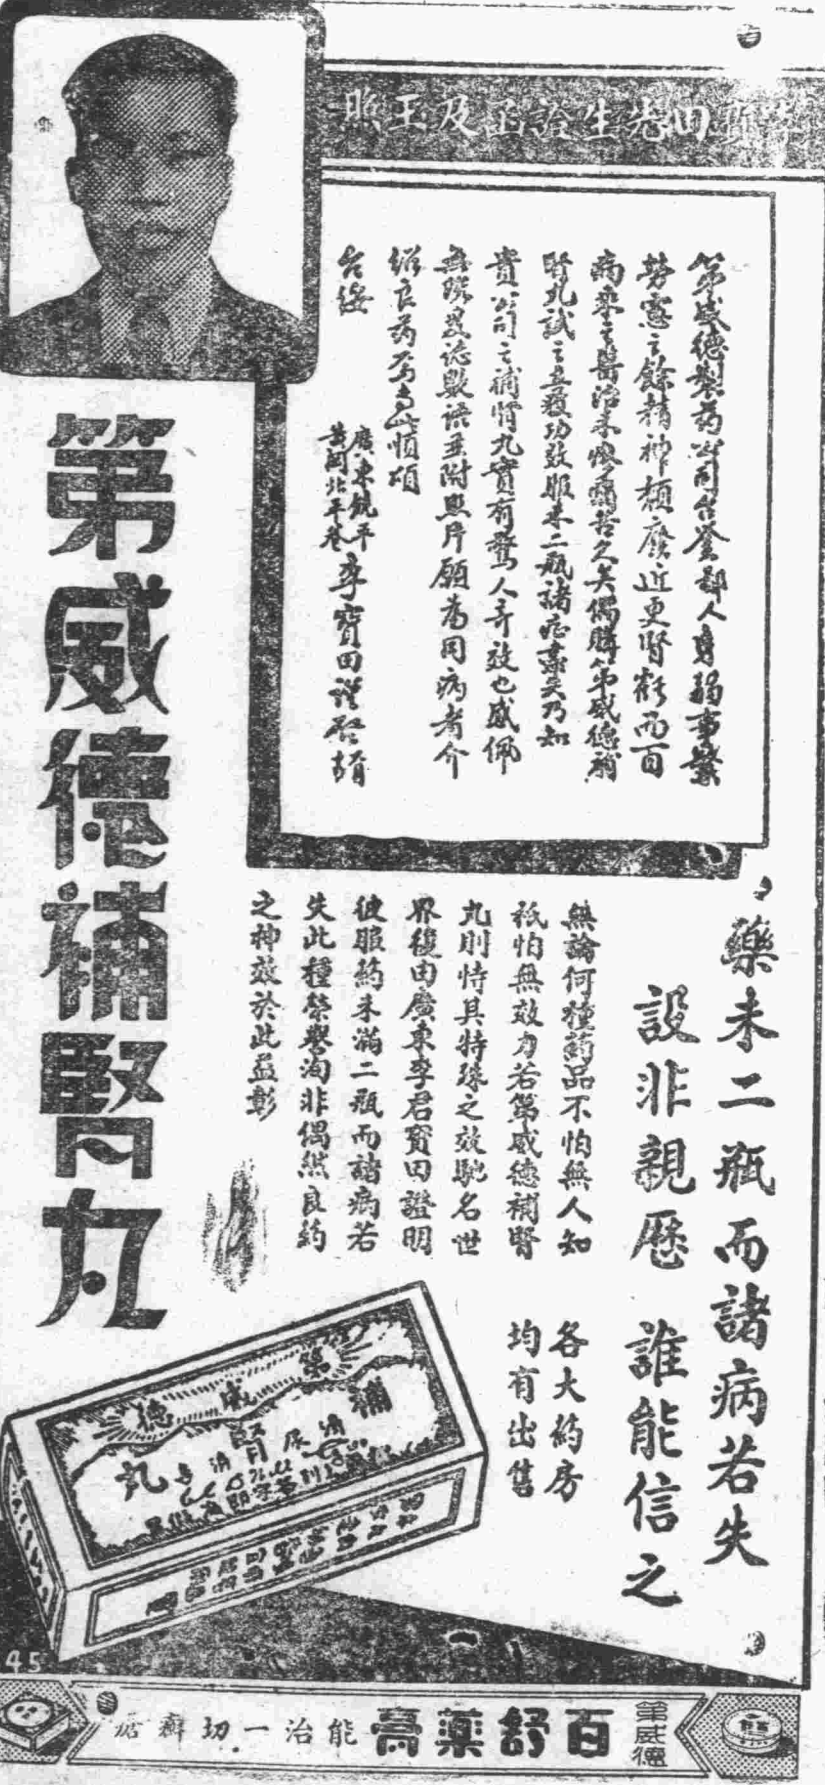 李寳田先生證函及玉照
第威德製药公司台鉴鄙人身弱事繁
勞慮之餘精神頹廢近更腎虧而百
病來之醫治未慘痛苦久矣偶購第威德補
腎丸試之立獲功效服未二瓶諸症盡失乃知
貴公司之補腎丸實有驚人奇效也感佩
無限爰誌數語並附照片願為同病者介
紹良药爲專此順頌
台绥
廣東饒平
黃岡北平巷
李寳田謹啓
第威德補腎丸
藥未二瓶而諸病若失
設非親歷 誰能信之
無論何種葯品不怕無人知
祇怕無效力若第威德補腎
丸則恃其特殊之效馳名世
界復由廣東李君寳田證明
彼服葯未滿二瓶而諸病若
失此種榮譽洵非偶然良葯
之神效於此益彰
各大葯房
均有出售
第威德
補腎丸
45
第威德
百舒藥膏
能治一切癬疮